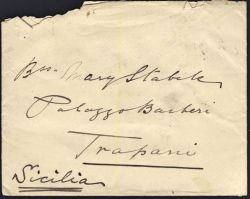 Bssa Mary Stabile
Palazzo Barberi
Trapani
Sicilia